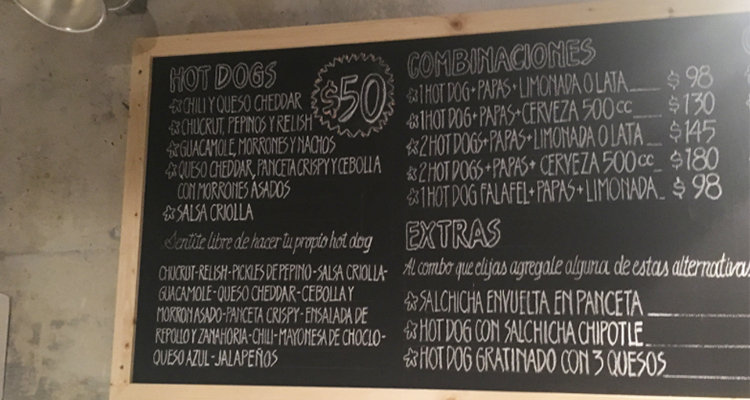 HOT DOGS
$50
CHILI Y QUESO CHEDDAR
CHUCRUT, PEPINOS Y RELISH
GUACAMOLE, MORRONES Y NACHOS
QUESO CHEDDAR, PANCETA CRISPY Y CEBOLLA
CON MORRONES ASADOS
SALSA CRIOLLA
Sentite libre de hacer tu propio hot dog
CHUCRUT-RELISH-PICKLES DE PEPINO-SALSA CRIOLLA-
GUACAMOLE-QUESO CHEDDAR-CEBOLLA Y
MORRON ASADO-PANCETA CRISPY-ENSALADA DE
REPOLLO Y ZANAHORIA-CHILI-MAYONESA DE CHOCLO-
QUESO AZUL-JALAPEÑOS
COMBINACIONES
1 HOT DOG+PAPAS+LIMONADA O LATA $98
1 HOT DOG+PAPAS+CERVEZA 500cc $130
2 HOT DOGS+PAPAS+LIMONADA O LATA $145
2 HOT DOGS+PAPAS+CERVEZA 500cc $180
1 HOT DOG FALAFEL+PAPAS+LIMONADA $98
EXTRAS
Al combo que elijas agregale alguna de estas alternativas
SALCHICHA ENVUELTA EN PANCETA
HOT DOG CON SALCHICHA CHIPOTLE
HOT DOG GRATINADO CON 3 QUESOS